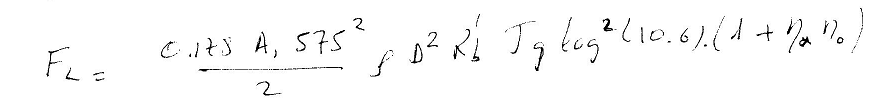 F_L = \frac{0.175 A, 575^2}{2} ρ D^2 R'_b J_g tog^2 (10.6).(1 + η_α η_o)